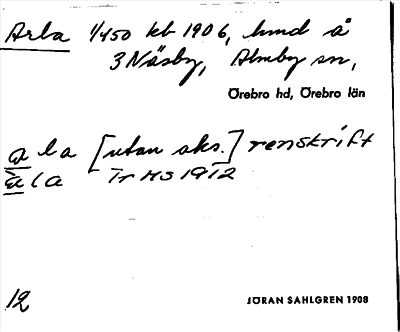 Arla 1/450 kb 1906, hmd å
3 Näsby, Almby sn,
Örebro hd, Örebro län
a la [utan aks.] renskrift
àla Tr HS 1912
12
JÖRAN SAHLGREN 1908